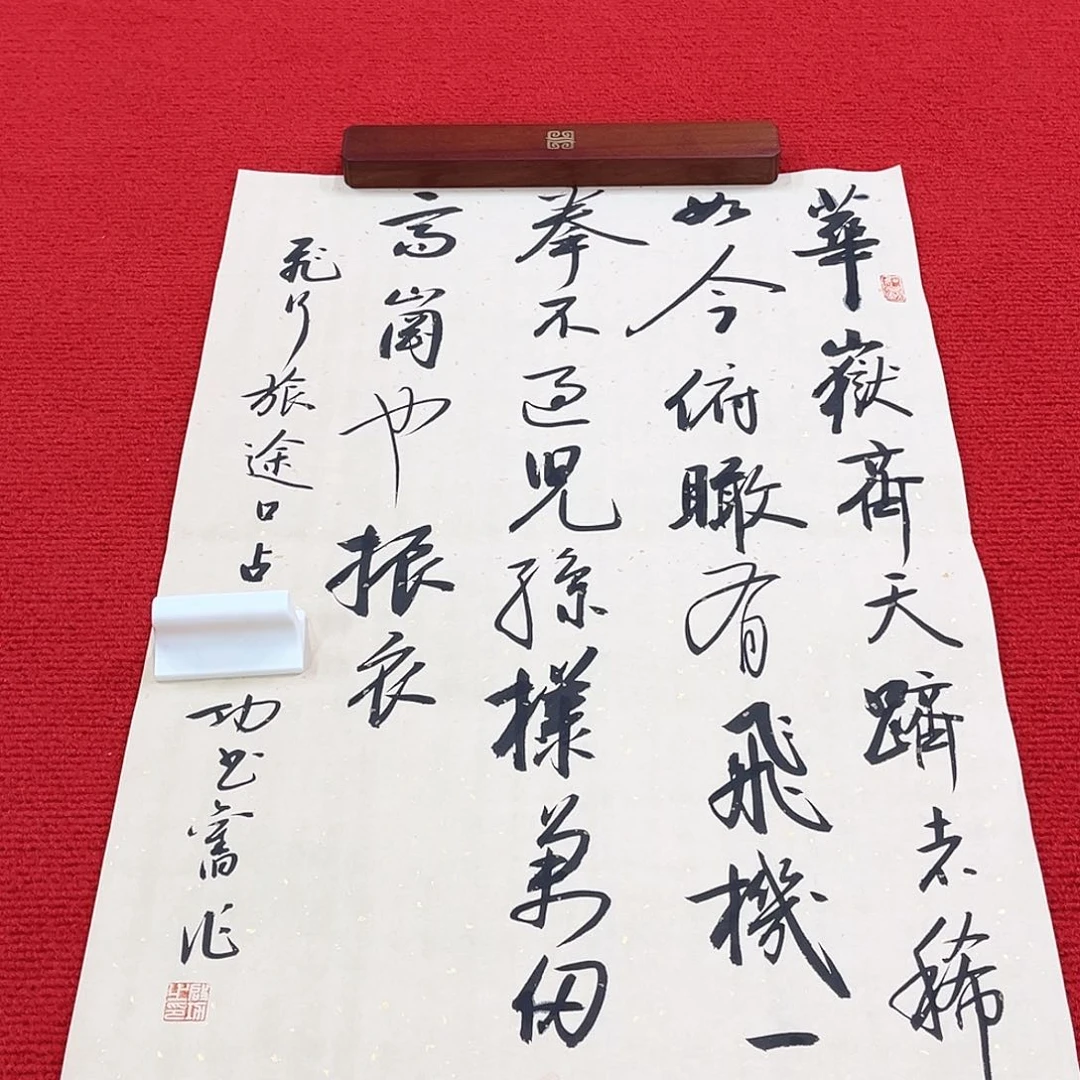 華嶽齊天躋者稀
如今俯瞰有飛機一
拳不過兒孫樣萬仞
高崗也振衣
飛行旅途口占
功書舊作
啓功之印